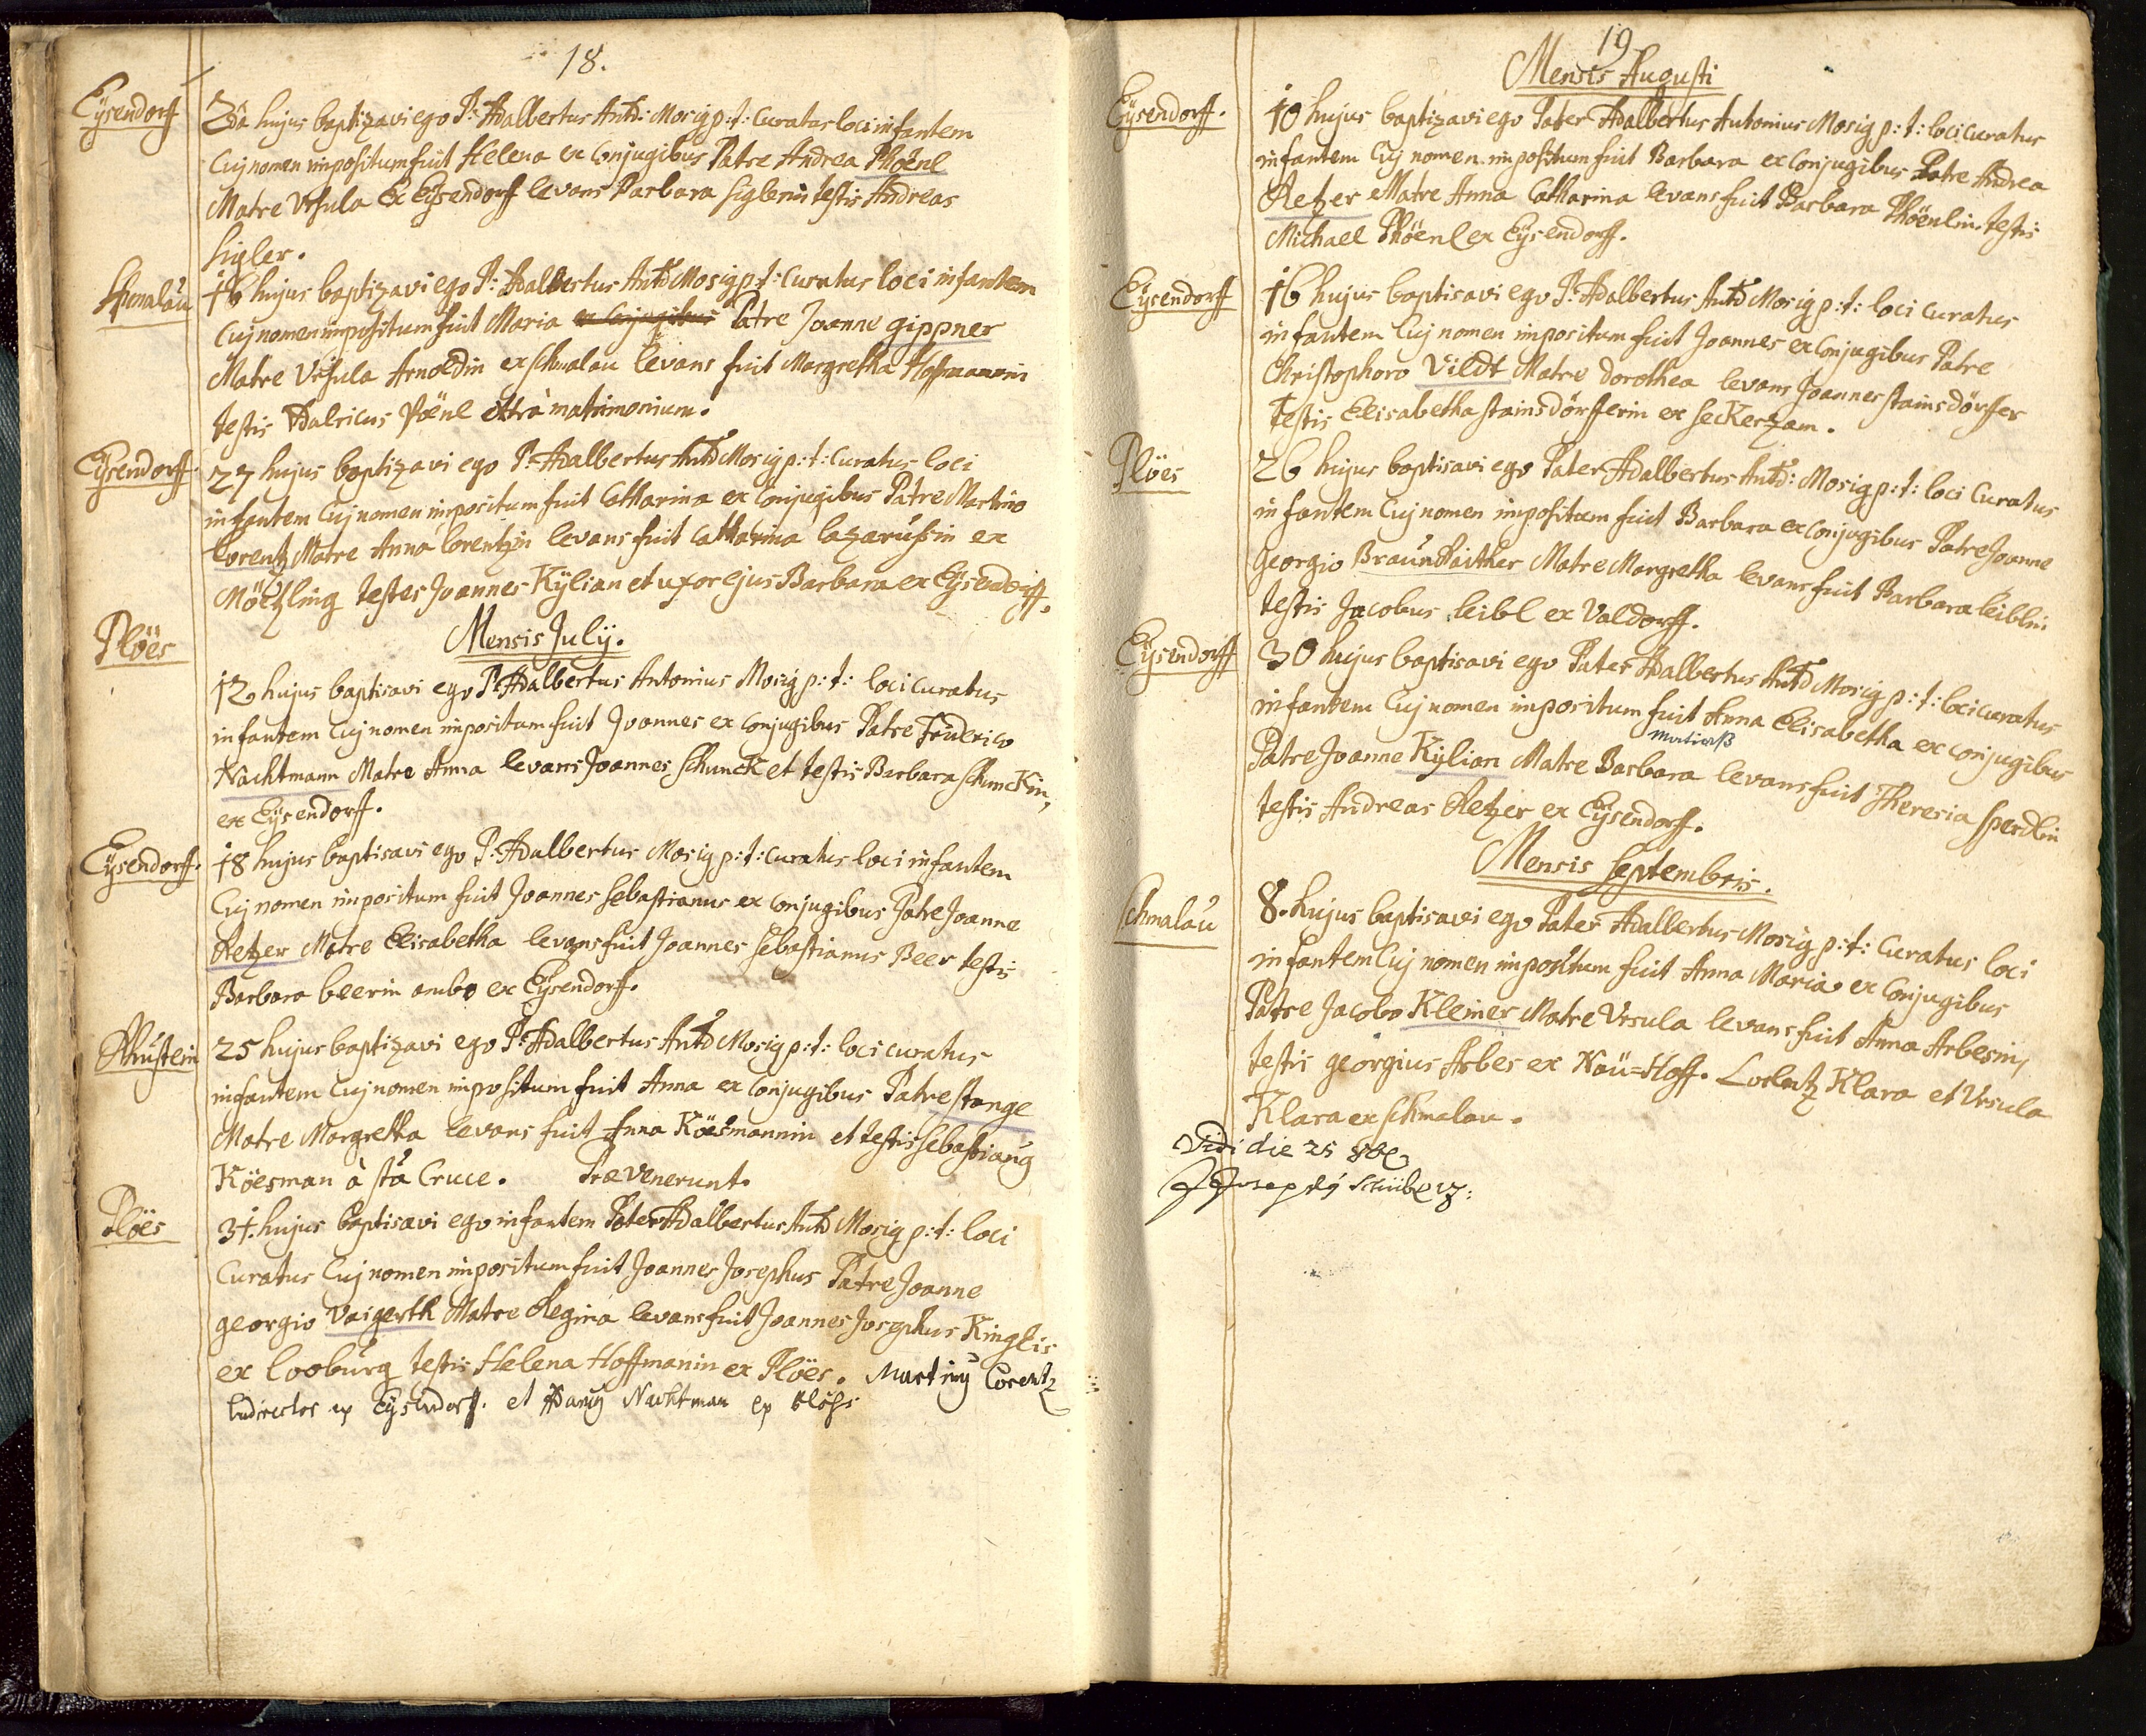 18.
Eÿsendorff
2da hujus baptizavi ego P: Adalbertus Antō: Mosig p:t: Curatus loci infantem
Cuj nomen impositum fuit Helena ex Conjugibus Patre Andrea Phöenl
Matre Vrsula Ex Eÿsendorff levans Barbara siglerin testis Andreas
sigler.
schmalau
16 hujus baptizavi ego P: Adalbertus Antō Mosig p:t: Curatus loci infantem
Cuj nomen impositum fuit Maria ex Conjugibus Patre Joanne gippner
Matre Vrsula Arnoldin ex schmalau levans fuit Margretha Hoffmannin
testis Vdalricus Pöenl extrà matrimonium.
Eÿsendorff.
27 hujus baptizavi ego P: Adalbertus Antō Mosig p:t: Curatus loci
infantem Cuj nomen impositum fuit Catharina ex Conjugibus Patre Martino
lorentz Matre Anna lorentzin levans fuit Catharina lazarußin ex
Möetzling testes Joannes Kÿlian et uxor ejus Barbara ex Eÿsendorff.
Mensis Julÿ.
Plöes
12 hujus baptisavi ego P: Adalbertus Antonius Mosig p:t: loci Curatus
infantem Cuj nomen impositum fuit Joannes ex Conjugibus Patre Friderico
Nachtmann Matre Anna levans Joannes schunck et testis Barbara schunckin,
ex Eÿsendorff.
Eÿsendorff.
18 hujus baptisavi ego P: Adalbertus Mosig p:t: Curatus loci infantem
Cuj nomen impositum fuit Joannes sebastianus ex Conjugibus Patre Joanne
Retzer Matre Elisabetha levans fuit Joannes sebastianus Beer testis
Barbara beerin ambo ex Eÿsendorff.
25 hujus baptizavi ego P: Adalbertus Antō Mosig p:t: loci Curatus
infantem Cuj nomen impositum fuit Anna ex Conjugibus Patre stange
Matre Margretha levans fuit Anna Köesmannin et testis sebastianus
Köesman à stâ Cruce. Praevenerunt.
Plöes
31. hujus baptisavi ego infantem Pater Adalbertus Antō Mosig p:t: loci
Curatus Cuj nomen impositum fuit Joannes Josephus Patre Joanne
georgio Vaigerth Matre Regina levans fuit Joannes Josephus Kinglis
ex looburg testis Helena Hoffmanin ex Plöes. Martinus Lorentz
ludirector ex Eÿsendorff. et Adamus Nachtman ex Plöss
19
Mensis Augusti
Eÿsendorff.
10 hujus baptizavi ego Pater Adalbertus Antonius Mosig p:t: loci Curatus
infantem Cuj nomen impositum fuit Barbara ex Conjugibus Patre Andrea
Retzer Matre Anna Catharina levans fuit Barbara Phöenlin. testis
Michael Phöenl ex Eÿsendorff.
Eÿsendorff
16 hujus baptisavi ego P: Adalbertus Antō Mosig p:t: loci Curatus
infantem Cuj nomen impositum fuit Joannes ex Conjugibus Patre
Christophoro Vildt Matre dorothea levans Joannes stainsdörffer
testis Elisabetha stainsdörfferin ex seckerzam.
Plöes
26 hujus baptisavi ego Pater Adalbertus Antō: Mosig p:t: loci Curatus
infantem Cuj nomen impositum fuit Barbara ex Conjugibus Patre Joanne
georgio Braunhaither Matre Margretha levans fuit Barbara leiblin
testis Jacobus leibl ex Valdorff.
Eÿsendorff
30 hujus baptisavi ego Pater Adalbertus Antō Mosig p:t: loci Curatus
infantem Cuj nomen impositum fuit Anna Elisabetha ex Conjugibus
Patre Joanne Kÿlian Matre Barbara levans fuit Theresia sperdlin
testis Andreas Retzer ex Eÿsendorff.
Mensis septembris.
schmalau
8. hujus baptisavi ego Pater Adalbertus Mosig p:t: Curatus loci
infantem Cuj nomen impositum fuit Anna Maria ex Conjugibus
Patre Jacobo Kleiner Matre Vrsula levans fuit Anna Arbesin,
testis georgius Arbes ex Naü=Hoff. Lorentz Klara et Vrsula
Klara ex schmalau.
Vidi die 25